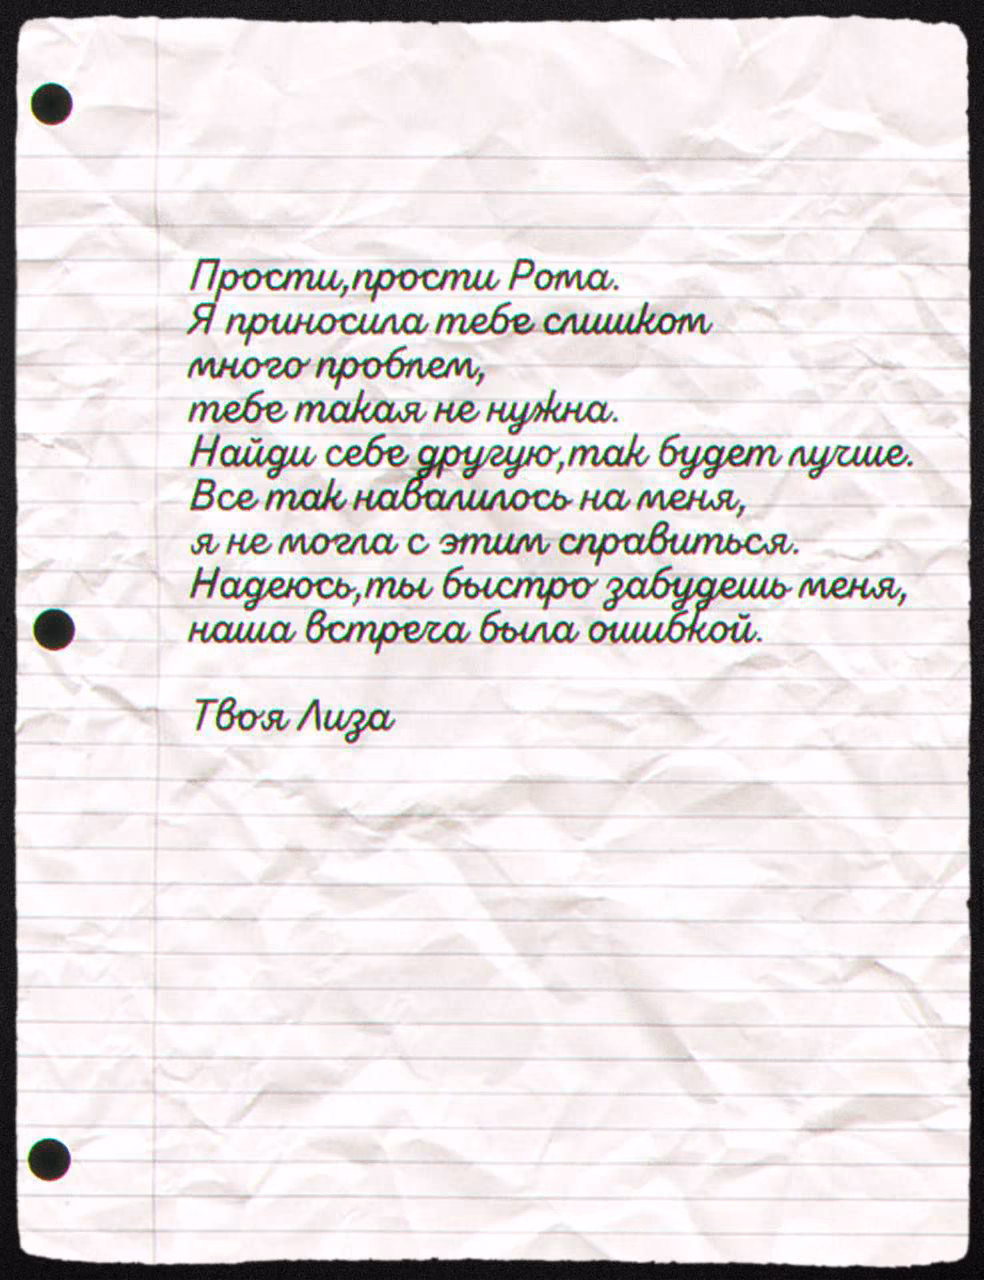 Прости,прости Рома.
Я приносила тебе слишком
много проблем,
тебе такая не нужна.
Найди себе другую,так будет лучше.
Все так навалилось на меня,
я не могла с этим справиться.
Надеюсь,ты быстро забудешь меня,
наша встреча была ошибкой.
Твоя Лиза